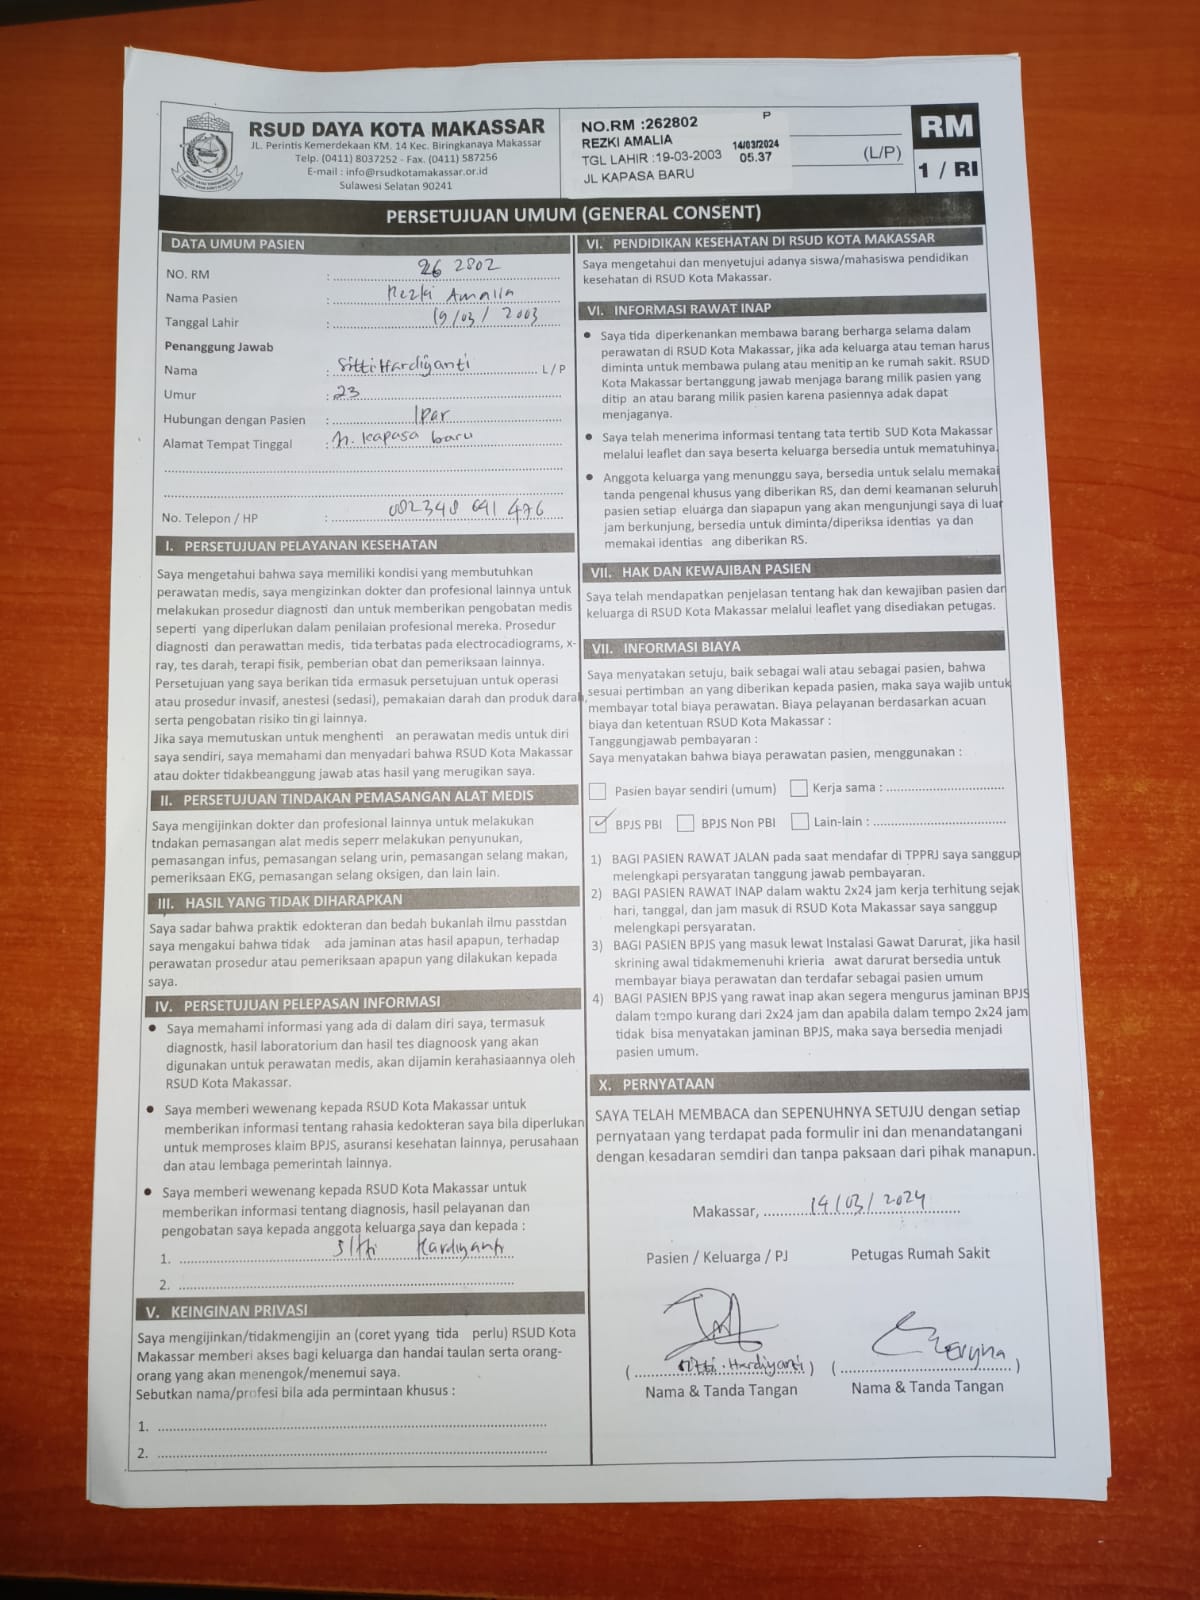 RSUD DAYA KOTA MAKASSAR
JL. Perintis Kemerdekaan KM. 14 Kec. Biringkanaya Makassar
Telp. (0411) 8037252 - Fax. (0411) 587256
E-mail : info@rsudkotamakassar.or.id
Sulawesi Selatan 90241
NO.RM :262802 P
REZKI AMALIA 14/03/2024
TGL LAHIR :19-03-2003 05.37
JL KAPASA BARU
(L/P)
RM
1 / RI
PERSETUJUAN UMUM (GENERAL CONSENT)
DATA UMUM PASIEN
NO. RM : 26 2802
Nama Pasien : Rezki Amalia
Tanggal Lahir : 19/03/2003
Penanggung Jawab
Nama : Sitti Hardiyanti L/P
Umur : 23
Hubungan dengan Pasien : Ipar
Alamat Tempat Tinggal : kapasa baru
No. Telepon / HP :
I. PERSETUJUAN PELAYANAN KESEHATAN
Saya mengetahui bahwa saya memiliki kondisi yang membutuhkan
perawatan medis, saya mengizinkan dokter dan profesional lainnya untuk
melakukan prosedur diagnosti dan untuk memberikan pengobatan medis
seperti yang diperlukan dalam penilaian profesional mereka. Prosedur
diagnosti dan perawattan medis, tida terbatas pada electrocadiograms, x-
ray, tes darah, terapi fisik, pemberian obat dan pemeriksaan lainnya.
Persetujuan yang saya berikan tida ermasuk persetujuan untuk operasi
atau prosedur invasif, anestesi (sedasi), pemakaian darah dan produk darah,
serta pengobatan risiko tin gi lainnya.
Jika saya memutuskan untuk menghenti an perawatan medis untuk diri
saya sendiri, saya memahami dan menyadari bahwa RSUD Kota Makassar
atau dokter tidakbeanggung jawab atas hasil yang merugikan saya.
II. PERSETUJUAN TINDAKAN PEMASANGAN ALAT MEDIS
Saya mengijinkan dokter dan profesional lainnya untuk melakukan
tndakan pemasangan alat medis seperr melakukan penyunukan,
pemasangan infus, pemasangan selang urin, pemasangan selang makan,
pemeriksaan EKG, pemasangan selang oksigen, dan lain lain.
III. HASIL YANG TIDAK DIHARAPKAN
Saya sadar bahwa praktik edokteran dan bedah bukanlah ilmu passtdan
saya mengakui bahwa tidak ada jaminan atas hasil apapun, terhadap
perawatan prosedur atau pemeriksaan apapun yang dilakukan kepada
saya.
IV. PERSETUJUAN PELEPASAN INFORMASI
● Saya memahami informasi yang ada di dalam diri saya, termasuk
diagnostk, hasil laboratorium dan hasil tes diagnoosk yang akan
digunakan untuk perawatan medis, akan dijamin kerahasiaannya oleh
RSUD Kota Makassar.
● Saya memberi wewenang kepada RSUD Kota Makassar untuk
memberikan informasi tentang rahasia kedokteran saya bila diperlukan
untuk memproses klaim BPJS, asuransi kesehatan lainnya, perusahaan
dan atau lembaga pemerintah lainnya.
● Saya memberi wewenang kepada RSUD Kota Makassar untuk
memberikan informasi tentang diagnosis, hasil pelayanan dan
pengobatan saya kepada anggota keluarga saya dan kepada :
1. Sitti Hardiyanti
2.
V. KEINGINAN PRIVASI
Saya mengijinkan/tidakmengijin an (coret yyang tida perlu) RSUD Kota
Makassar memberi akses bagi keluarga dan handai taulan serta orang-
orang yang akan menengok/menemui saya.
Sebutkan nama/profesi bila ada permintaan khusus :
1.
2.
VI. PENDIDIKAN KESEHATAN DI RSUD KOTA MAKASSAR
Saya mengetahui dan menyetujui adanya siswa/mahasiswa pendidikan
kesehatan di RSUD Kota Makassar.
VI. INFORMASI RAWAT INAP
● Saya tida diperkenankan membawa barang berharga selama dalam
perawatan di RSUD Kota Makassar, jika ada keluarga atau teman harus
diminta untuk membawa pulang atau menitip an ke rumah sakit. RSUD
Kota Makassar bertanggung jawab menjaga barang milik pasien yang
ditip an atau barang milik pasien karena pasiennya adak dapat
menjaganya.
● Saya telah menerima informasi tentang tata tertib SUD Kota Makassar
melalui leaflet dan saya beserta keluarga bersedia untuk mematuhinya.
● Anggota keluarga yang menunggu saya, bersedia untuk selalu memakai
tanda pengenal khusus yang diberikan RS, dan demi keamanan seluruh
pasien setiap eluarga dan siapapun yang akan mengunjungi saya di luar
jam berkunjung, bersedia untuk diminta/diperiksa identias ya dan
memakai identias ang diberikan RS.
VII. HAK DAN KEWAJIBAN PASIEN
Saya telah mendapatkan penjelasan tentang hak dan kewajiban pasien dan
keluarga di RSUD Kota Makassar melalui leaflet yang disediakan petugas.
VII. INFORMASI BIAYA
Saya menyatakan setuju, baik sebagai wali atau sebagai pasien, bahwa
sesuai pertimban an yang diberikan kepada pasien, maka saya wajib untuk
membayar total biaya perawatan. Biaya pelayanan berdasarkan acuan
biaya dan ketentuan RSUD Kota Makassar :
Tanggungjawab pembayaran :
Saya menyatakan bahwa biaya perawatan pasien, menggunakan :
Pasien bayar sendiri (umum) Kerja sama :
✓ BPJS PBI BPJS Non PBI Lain-lain :
1) BAGI PASIEN RAWAT JALAN pada saat mendafar di TPPRJ saya sanggup
melengkapi persyaratan tanggung jawab pembayaran.
2) BAGI PASIEN RAWAT INAP dalam waktu 2x24 jam kerja terhitung sejak
hari, tanggal, dan jam masuk di RSUD Kota Makassar saya sanggup
melengkapi persyaratan.
3) BAGI PASIEN BPJS yang masuk lewat Instalasi Gawat Darurat, jika hasil
skrining awal tidakmemenuhi krieria awat darurat bersedia untuk
membayar biaya perawatan dan terdafar sebagai pasien umum
4) BAGI PASIEN BPJS yang rawat inap akan segera mengurus jaminan BPJS
dalam tempo kurang dari 2x24 jam dan apabila dalam tempo 2x24 jam
tidak bisa menyatakan jaminan BPJS, maka saya bersedia menjadi
pasien umum.
X. PERNYATAAN
SAYA TELAH MEMBACA dan SEPENUHNYA SETUJU dengan setiap
pernyataan yang terdapat pada formulir ini dan menandatangani
dengan kesadaran semdiri dan tanpa paksaan dari pihak manapun.
Makassar, 14/03/2024
Pasien / Keluarga / PJ Petugas Rumah Sakit
(Sitti. Hardiyanti) ( )
Nama & Tanda Tangan Nama & Tanda Tangan